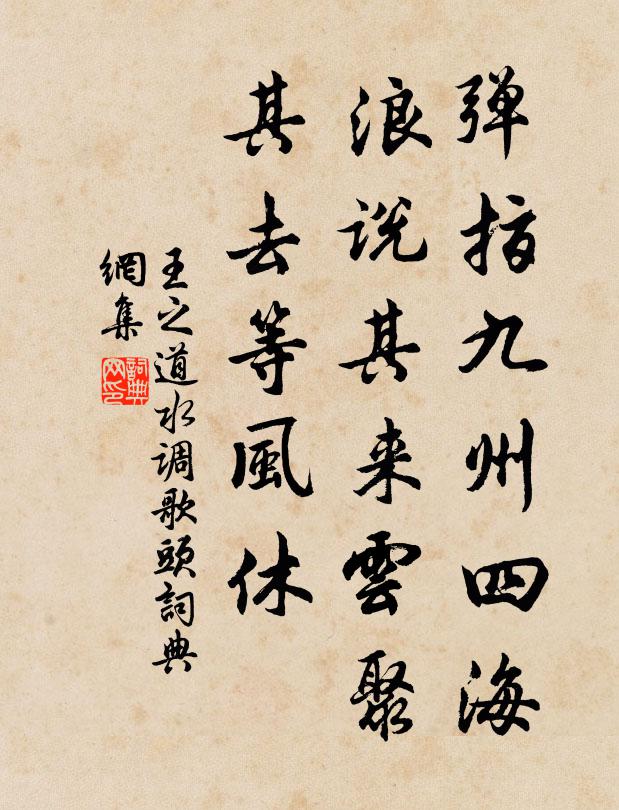 弹指九州四海
浪说其来雲聚
其去等風休
王之道水调歌頭詞典
網集
詞典
网印